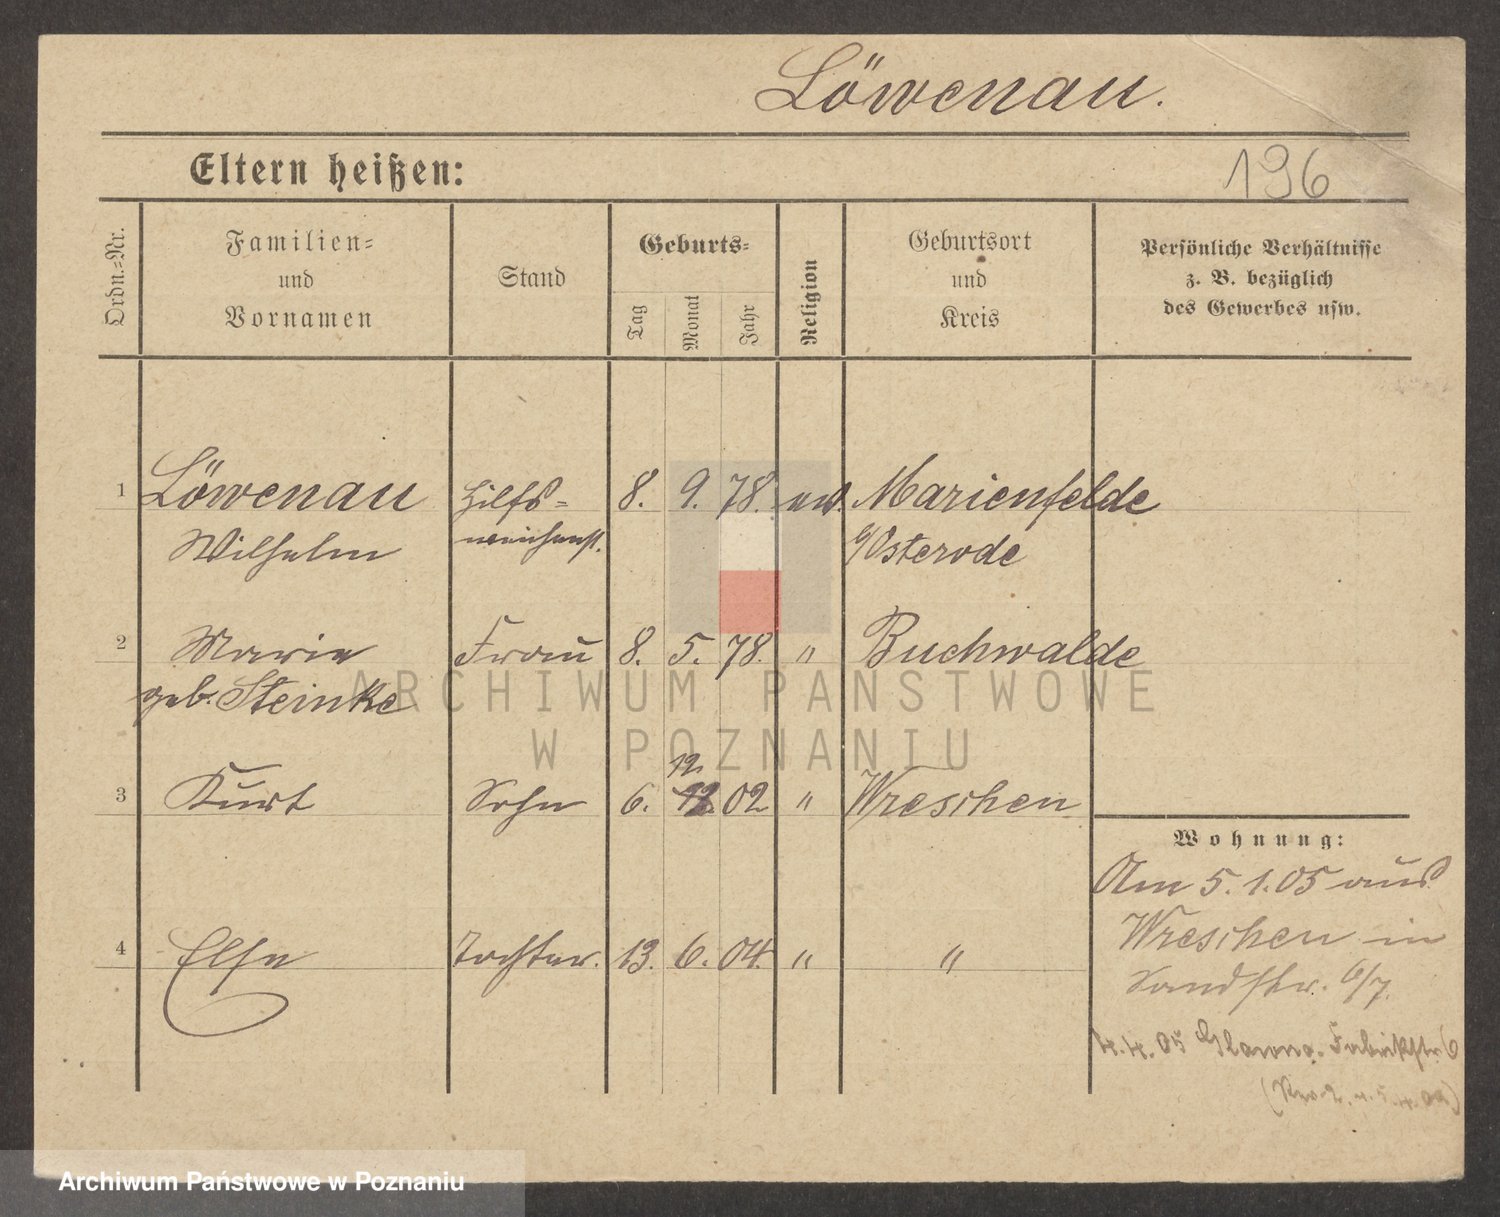 Löwenau.
Eltern heißen:
196
Ordn.-Nr.
Familien-
und
Vornamen
Stand
Geburts-
Tag
Monat
Jahr
Religion
Geburtsort
und
Kreis
Persönliche Verhältnisse
z. B. bezüglich
des Gewerbes usw.
1 Löwenau Hilfs- 8. 9. 78. ev. Marienfelde
Wilhelm Osterode
2 Marie Frau 8. 5. 78. " Buchwalde
geb. Steinke
12.
3 Kurt Sohn 6. 02 " Wreschen
4 Else Tochter. 13. 6. 04. " "
Wohnung:
Am 5.1.05 aus
Wreschen in
Sandstr. 6/7.
4.4.05 Glowno. Fabrikstr. 6
ARCHIWUM PAŃSTWOWE
W POZNANIU
Archiwum Państwowe w Poznaniu